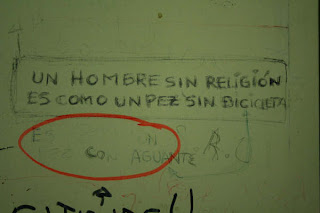 UN HOMBRE SIN RELIGIÓN
ES COMO UN PEZ SIN BICICLETA
ES UN
CON AGUANTE R.